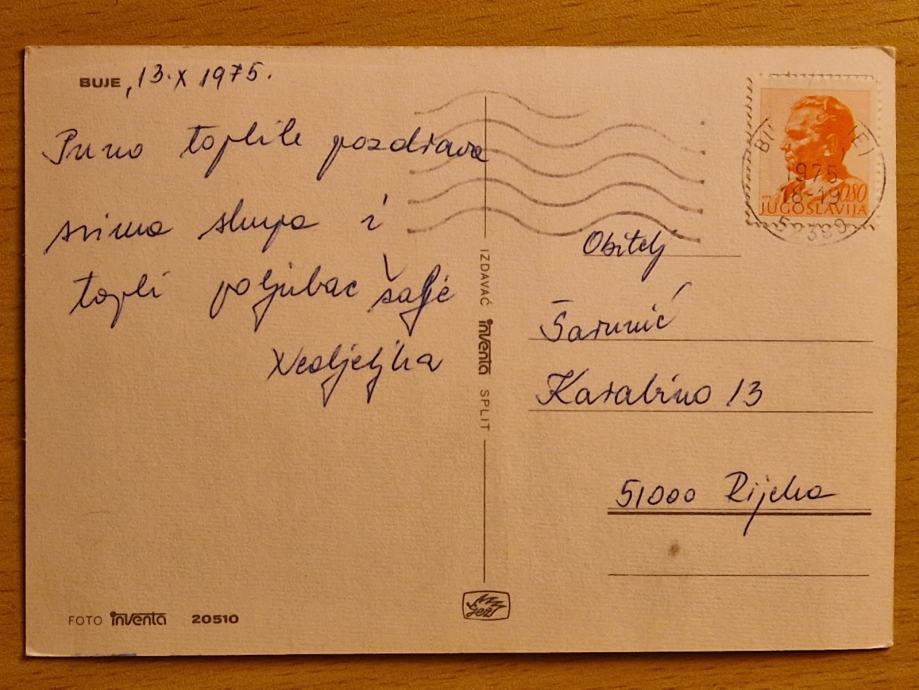 BUJE, 13. X 1975.
Puno toplih pozdrava
svima skupa i
topli poljubac šalje
Nedjeljka
IZDAVAČ inventa SPLIT
1975
18-19
52399
0,80
JUGOSLAVIJA
Obitelj
Šarunić
Karabino 13
51000 Rijeka
FOTO inventa 20510
jež